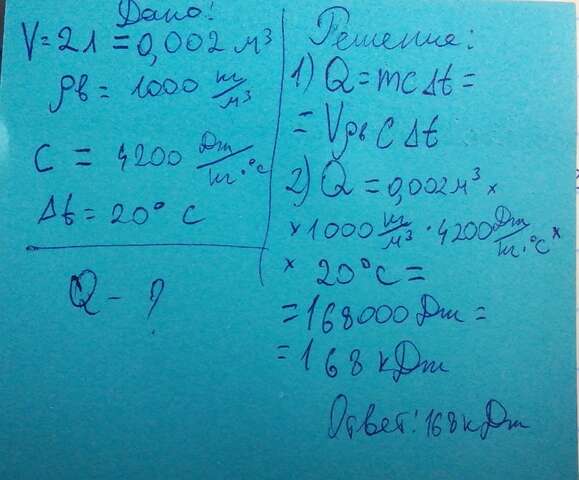 Дано:
V = 2 л = 0,002 м³
ρв = 1000 кг/м³
C = 4200 Дж/кг·°C
Δt = 20° C
Q – ?
Решение:
1) Q = mcΔt =
= Vρв C Δt
2) Q = 0,002 м³ ×
× 1000 кг/м³ · 4200 Дж/кг·°C ×
× 20°C =
= 168000 Дж =
= 168 кДж
Ответ: 168 кДж